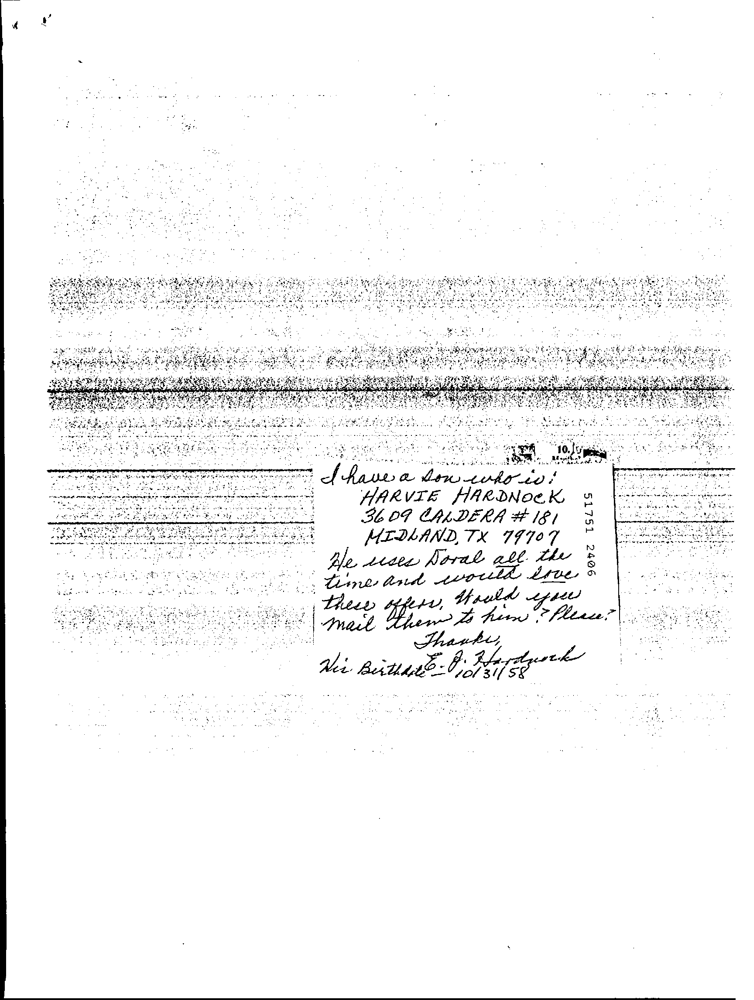 10.
I have a son who is:
HARVIE HARDNOCK
3609 CALDERA # 181
MIDLAND, TX 79707
He uses Doral all the
time and would love
these offers, Would you
mail them to him? Please?
Thanks,
E. J. Hardnock
His Birthdate - 10/31/58
51751 2406